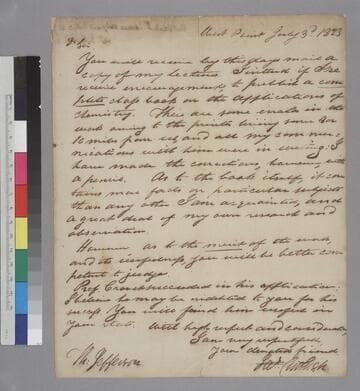 West Point July 3d 1823
Dr Sir
You will receive by this days mail a
copy of my lectures. I intend if I re
ceive encouragement to publish a com
plete class book on the applications of
chemistry. There are some errata in the
work owing to the printer being some 8 or
10 miles from me, and all my commu
nications with him were in writing: I
have made the corrections, however with
a pencil. As to the book itself, it con
tains more facts on particular subjects
than any other I am acquainted, and
a great deal of my own research and
observation
However as to the merits of the work,
and its usefulness you will be better com
petent to judge.
Prof. succeeded in his application.
I believe he may be indebted to you for his
success You will find him useful in
your State. With high respect and consideration,
I am very respectfully,
Your devoted friend
Th: Jefferson